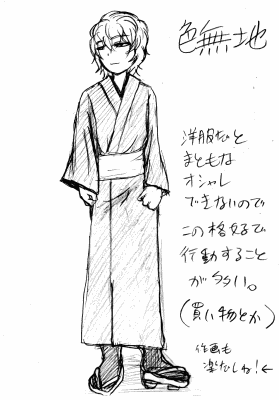 色無地
洋服だと
まともな
オシャレ
できないので
この格好で
行動すること
が多い。
(買い物とか)
作画も
楽だしね!←